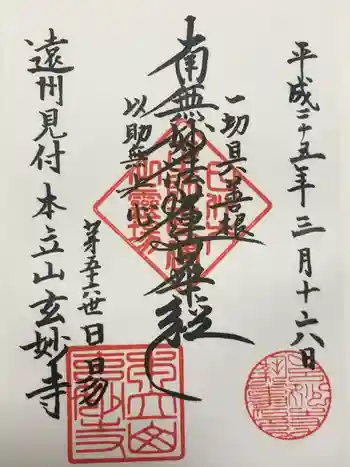 平成二十五年三月十六日
一切具善根
南無妙法蓮華経
以助無上心
第五十六世日昜
遠州見付本立山玄妙寺